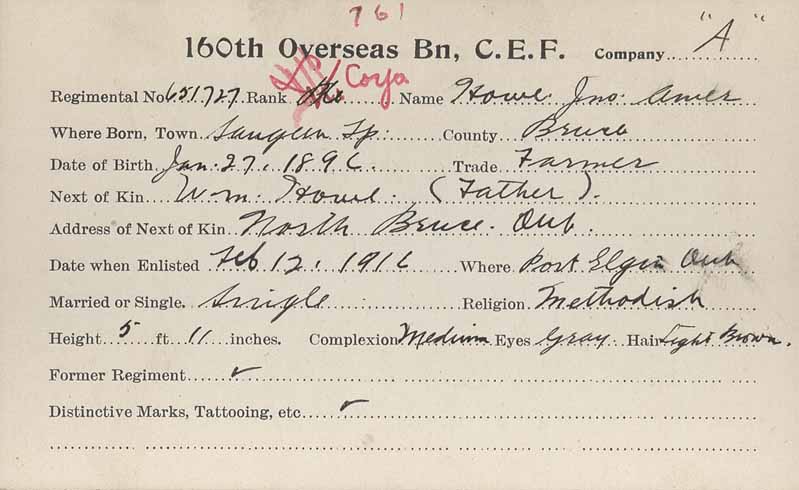 761
160th Overseas Bn, C.E.F. Company "A"
Regimental No 651727 Rank Pte Name Howe Jno. Amer
Where Born, Town Saugeen Tp. County Bruce
Date of Birth Jan. 27. 1896. Trade Farmer
Next of Kin Wm. Howe. (Father).
Address of Next of Kin North Bruce. Ont.
Date when Enlisted Feb 12, 1916 Where Port Elgin Ont
Married or Single. Single Religion Methodist
Height 5 ft 11 inches. Complexion Medium Eyes Gray Hair Light Brown.
Former Regiment ✓
Distinctive Marks, Tattooing, etc ✓